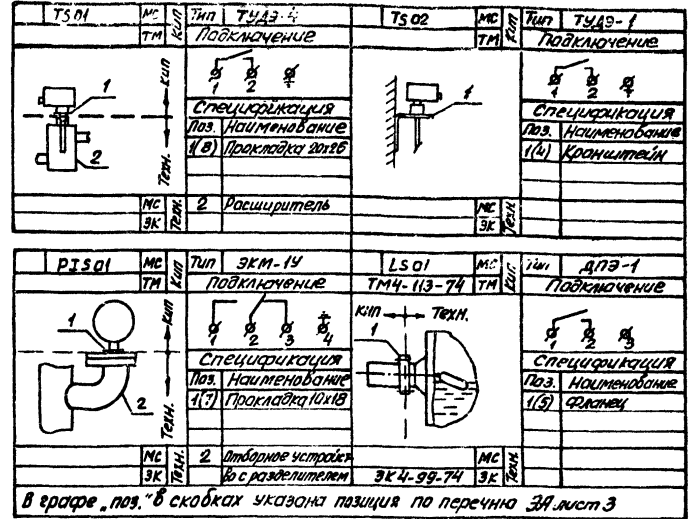 TS01 МС КИП Тип ТУДЭ-4
ТМ Подключение
1 2
КИП
1
Техн.
2
Спецификация
Поз. Наименование
1(8) Прокладка 20x26
МС Техн. 2 Расширитель
ЭК
TS02 МС КИП Тип ТУДЭ-1
ТМ Подключение
1 2
1
Спецификация
Поз. Наименование
1(4) Кронштейн
МС Техн.
ЭК
PIS01 МС КИП Тип ЭКМ-1У
ТМ Подключение
1 2 3 4
КИП
1
Техн.
2
Спецификация
Поз. Наименование
1(7) Прокладка 10x18
МС Техн. 2 Отборное устройст
ЭК во с разделителем
LS01 МС КИП Тип ДПЭ-1
ТМ4-113-74 ТМ Подключение
1 2 3
КИП Техн.
1
Спецификация
Поз. Наименование
1(5) Фланец
МС Техн.
ЭК4-99-74 ЭК
В графе „поз." в скобках указана позиция по перечню ЭА лист 3